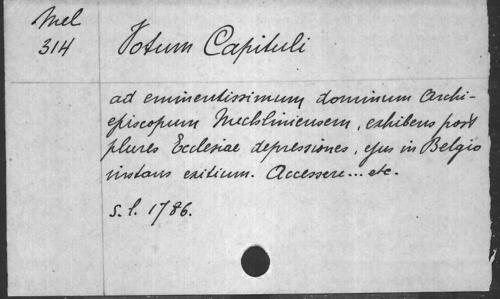 Mel
314
Votum Capituli
ad eminentissimum dominum Archi-
episcopum Mechliniensem, exhibens post
plures Ecclesiae depressiones, ejus in Belgio
instans exitium. Accessere... etc.
s.l. 1786.